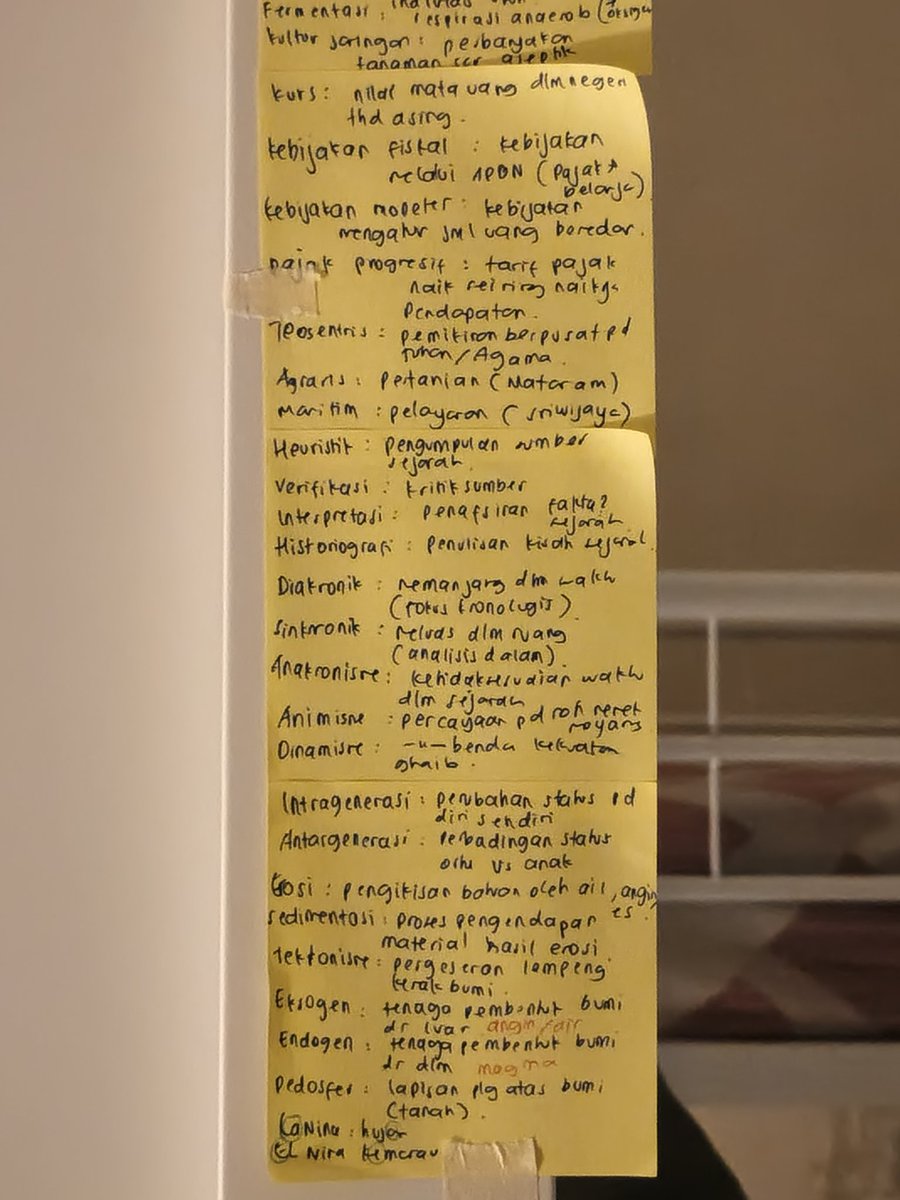 Fermentasi : respirasi anaerob
kultur jaringan : perbanyakan
tanaman scr aseptik
kurs : nilai mata uang dlm negeri
thd asing.
kebijakan fiskal : kebijakan
melalui APBN (pajak
belanja)
kebijakan moneter : kebijakan
mengatur jml uang beredar.
pajak progresif : tarif pajak
naik seiring naikya
pendapatan.
Teosentris : pemikiran berpusat pd
Tuhan/Agama.
Agraris : pertanian (Mataram)
Maritim : pelayaran (Sriwijaya)
Heuristik : pengumpulan sumber
sejarah.
Verifikasi : kritik sumber
Interpretasi : penafsiran fakta2
sejarah
Historiografi : penulisan kisah sejarah.
Diakronik : memanjang dlm waktu
(fokus kronologis)
Sinkronik : meluas dlm ruang
(analisis dalam).
Anakronisme : ketidaksesuaian waktu
dlm sejarah
Animisme : percayaan pd roh nenek
moyang
Dinamisme : -u- benda kekuatan
ghaib.
Intragenerasi : perubahan status pd
diri sendiri
Antargenerasi : perbadingan status
ortu vs anak
Erosi : pengikisan batuan oleh air, angin,
es.
Sedimentasi : proses pengendapan
material hasil erosi
Tektonisme : pergeseran lempeng
kerak bumi.
Eksogen : tenaga pembentuk bumi
dr luar angin/air
Endogen : tenaga pembentuk bumi
dr dlm magma
Pedosfer : lapisan plg atas bumi
(tanah).
La Nina : hujan
El Nina kemarau